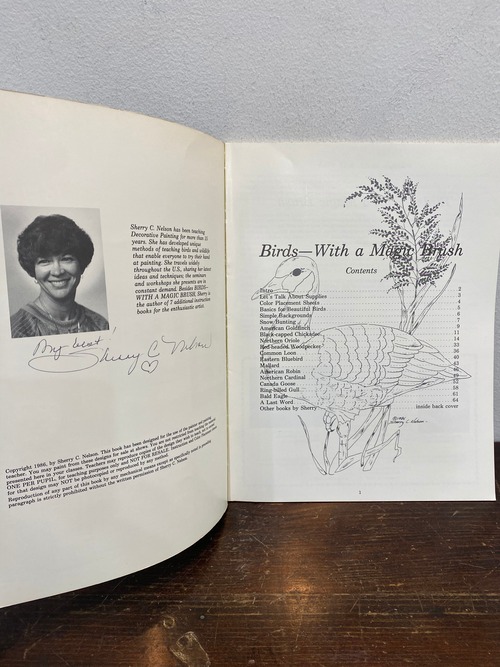 Sherry C. Nelson has been teaching
Decorative Painting for more than 15
years. She has developed unique
methods of teaching birds and wildlife
that enable everyone to try their hand
at painting. She travels widely
throughout the U.S., sharing her latest
ideas and techniques; the seminars
and workshops she presents are in
constant demand. Besides BIRDS—
WITH A MAGIC BRUSH, Sherry is
the author of 7 additional instruction
books for the enthusiastic artist.
My best!
Sherry C Nelson
Copyright 1986, by Sherry C. Nelson. This book has been designed for the use of the painter and
teacher. You may paint from these designs for sale at shows. You are
presented here in your classes. Teachers may reproduce copies of the design they wish to
ONE PER PUPIL, for teaching purposes only and NOT FOR RESALE.
for that design may NOT be photocopied or reproduced by any method.
Reproduction of any part of this book by any mechanical means except as specifically noted in preceding
paragraph is strictly prohibited without the written permission of Sherry C. Nelson.
Birds—With a Magic Brush
Contents
Intro 2
Let's Talk About Supplies 3
Color Placement Sheets 4
Basics for Beautiful Birds 5
Simple Backgrounds 6
Snow Bunting 7
American Goldfinch 9
Black-capped Chickadee 11
Northern Oriole 14
Red-headed Woodpecker 33
Common Loon 36
Eastern Bluebird 40
Mallard 43
American Robin
Northern Cardinal
Canada Goose 52
Ring-billed Gull 58
Bald Eagle 61
A Last Word 64
Other books by Sherry inside back cover
©1986
Sherry C. Nelson
1